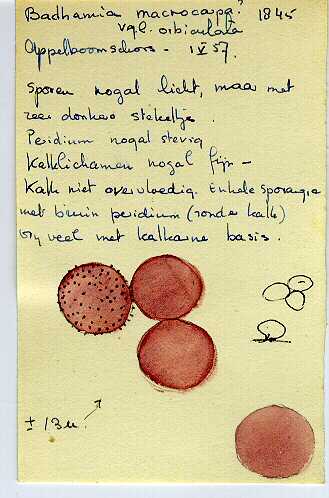 Badhamia macrocarpa? 1845
vgl. orbiculata
Appelboomschors - IV 57.
Sporen nogal licht, maar met
zeer donkere stekeltjes.
Peridium nogal stevig
Kalklichamen nogal fijn -
Kalk niet overvloedig. Enkele sporangia
met bruin peridium (zonder kalk)
Vrij veel met kalkarme basis.
± 13 u.